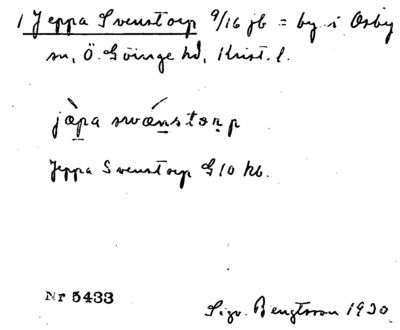 1 Jeppa Svenstorp 9/16 jb = by i Osby
sn, Ö. Göinge hd, Krist. l.
jàpa swǽnstorp
Jeppa Svenstorp G10 kb.
Nr 5433
Sigv. Bengtsson 1930.